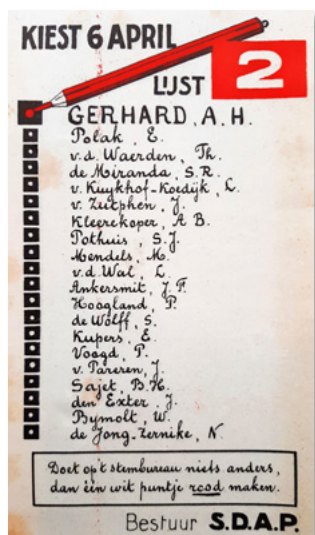 KIEST 6 APRIL
LIJST 2
GERHARD, A. H.
Polak, E.
v.d. Waerden, Th.
de Miranda, S.R.
v. Kuykhof-Koedijk, L.
v. Zutphen, J.
Kleerekoper, A B.
Pothuis, S.J.
Mendels, M.
v.d. Wal, L.
Ankersmit, J.F.
Hoogland, P.
de Wolff, S.
Kupers, E.
Voogd, P.
v. Pareren, J.
Sajet, B.H.
den Exter, J.
Bymolt, W.
de Jong-Zernike, N.
Doet op't stembureau niets anders,
dan één wit puntje rood maken.
Bestuur S.D.A.P.